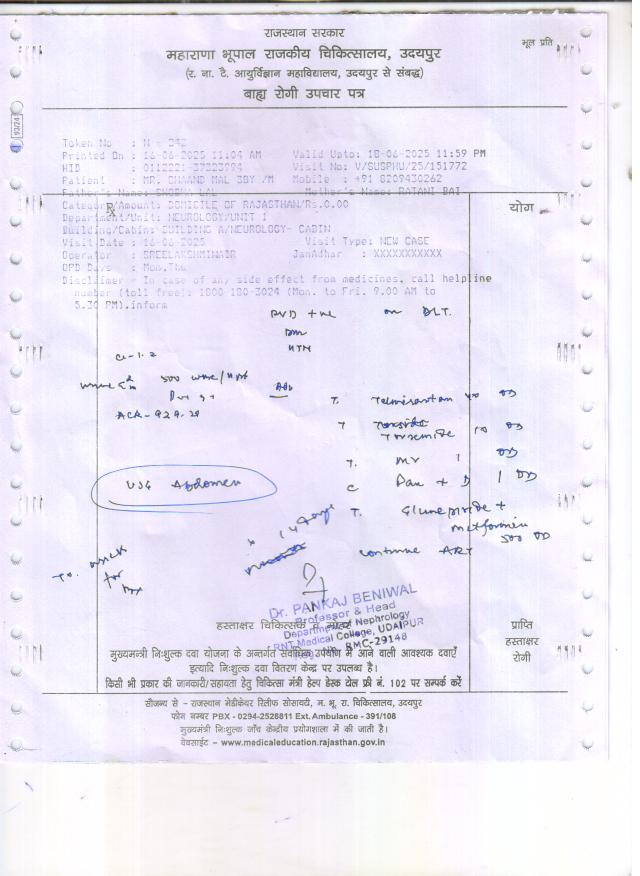 राजस्थान सरकार
महाराणा भूपाल राजकीय चिकित्सालय, उदयपुर
भूल प्रति
(र. ना. टै. आयुर्विज्ञान महाविद्यालय, उदयपुर से संबद्ध)
बाह्य रोगी उपचार पत्र
93/24
Token No : N - 242
Printed On : 16-06-2025 11:04 AM Valid Upto: 18-06-2025 11:59 PM
HID : Visit No: V/SUSPHU/25/151772
Patient : MR. CHAAND MAL 38Y /M Mobile : +91 8209430262
Father's Name: Mother's Name: RATANI BAI
Category/Amount: DOMICILE OF RAJASTHAN/Rs.0.00
योग
Department/Unit: NEUROLOGY/UNIT 1
Building/Cabin: BUILDING A/NEUROLOGY- CABIN
Visit Date : 16-06-2025 Visit Type: NEW CASE
Operator : SREELAKSHMINAIR JanAadhar : XXXXXXXXXXX
OPD Days : Mon,Thu
Disclaimer - In case of any side effect from medicines, call helpline
number (toll free): 1800-180-3024 (Mon. to Fri. 9.00 AM to
5.30 PM).inform
+ve on
DM
HTN
500
ACR - 929.28
T. Telmisartan 40 OD
T
Torsemide 10 OD
T. MV 1 OD
C Pan + D 1 OD
USG Abdomen
T. Glimepiride +
Metformin
500 OD
x 14 days
continue ART
for
Dr. PANKAJ BENIWAL
Professor & Head
Department of Nephrology
RNT Medical College, UDAIPUR
RMC-29148
हस्ताक्षर चिकित्सक व मोहर
प्राप्ति
हस्ताक्षर
रोगी
मुख्यमन्त्री निःशुल्क दवा योजना के अन्तर्गत सर्वाधिक उपयोग में आने वाली आवश्यक दवाएँ
इत्यादि निःशुल्क दवा वितरण केन्द्र पर उपलब्ध है।
किसी भी प्रकार की जानकारी/सहायता हेतु चिकित्सा मंत्री हेल्प डेस्क टोल फ्री नं. 102 पर सम्पर्क करें
सौजन्य से - राजस्थान मेडीकेयर रिलीफ सोसायटी, म. भू. रा. चिकित्सालय, उदयपुर
फोन नम्बर PBX - 0294-2528811 Ext. Ambulance - 391/108
मुख्यमन्त्री निःशुल्क जाँच केन्द्रीय प्रयोगशाला में की जाती है।
वेबसाईट - www.medicaleducation.rajasthan.gov.in